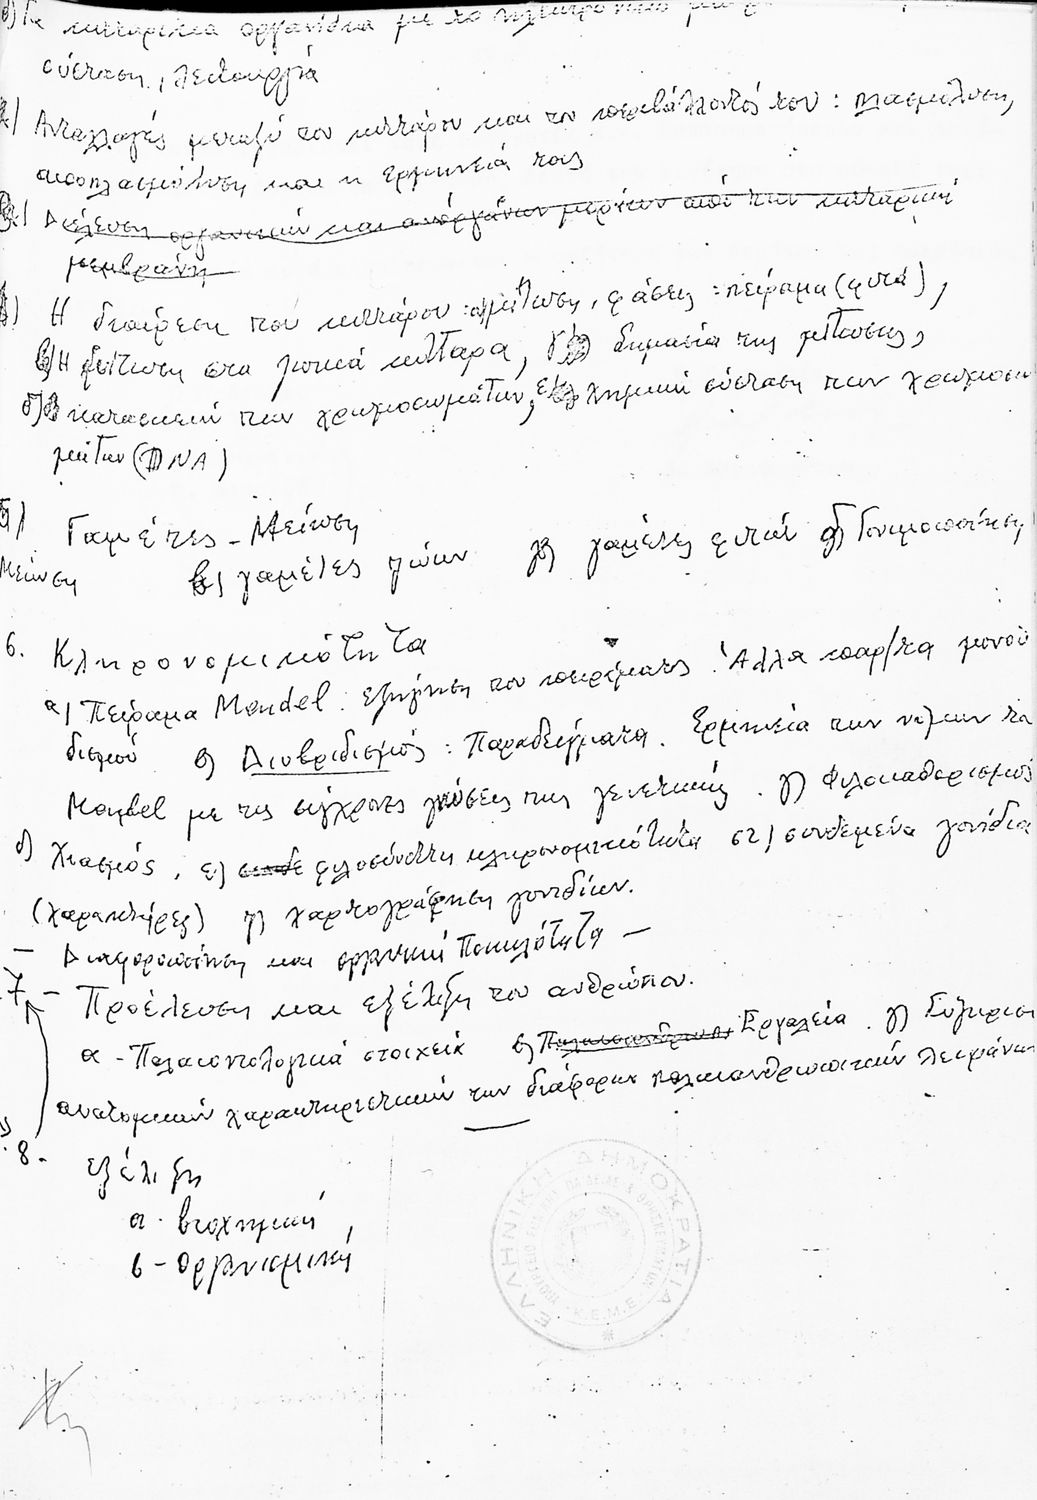 β) Τα κυτταρικά οργανίδια με το ηλεκτρονικό
σύσταση, λειτουργία
Ανταλλαγές μεταξύ του κυττάρου και του περιβάλλοντός του: πλασμόλυση,
αποπλασμόλυση και η ερμηνεία τους
Διέλευση οργανικών και ανόργανων μορίων από την κυτταρική
μεμβράνη
Η διαίρεση του κυττάρου: α) μίτωση, φάσεις: πείραμα (φυτά),
β) Η μίτωση στα ζωικά κύτταρα, γ) σημασία της μίτωσης,
δ) κατασκευή των χρωμοσωμάτων, ε) χημική σύσταση των χρωμοσω
μάτων (DNA)
5) Γαμέτες - Μείωση
Μείωση β) γαμέτες ζώων γ) γαμέτες φυτών δ) Γονιμοποίηση
6. Κληρονομικότητα
α) Πείραμα Mendel: εξήγηση του πειράματος. Άλλα παρ/τα μονοϋ
δισμού β) Διυβριδισμός: Παραδείγματα. Ερμηνεία των νόμων του
Mendel με τις σύγχρονες γνώσεις της γενετικής. γ) Φυλοκαθορισμός
δ) Χιασμός, ε) φυλοσύνδετη κληρονομικότητα στ) συνδεμένα γονίδια
(χαρακτήρες) ζ) χαρτογράφηση γονιδίων.
— Διαφοροποίηση και οργανική Ποικιλότητα —
7 - Προέλευση και εξέλιξη του ανθρώπου.
α - Παλαιοντολογικά στοιχεία β) Εργαλεία. γ) Σύγκριση
ανατομικών χαρακτηριστικών των διάφορων παλαιανθρωπικών λειψάνων
8. εξέλιξη
α. βιοχημική,
β - οργανισμική
ΕΛΛΗΝΙΚΗ ΔΗΜΟΚΡΑΤΙΑ
Κ.Ε.Μ.Ε.